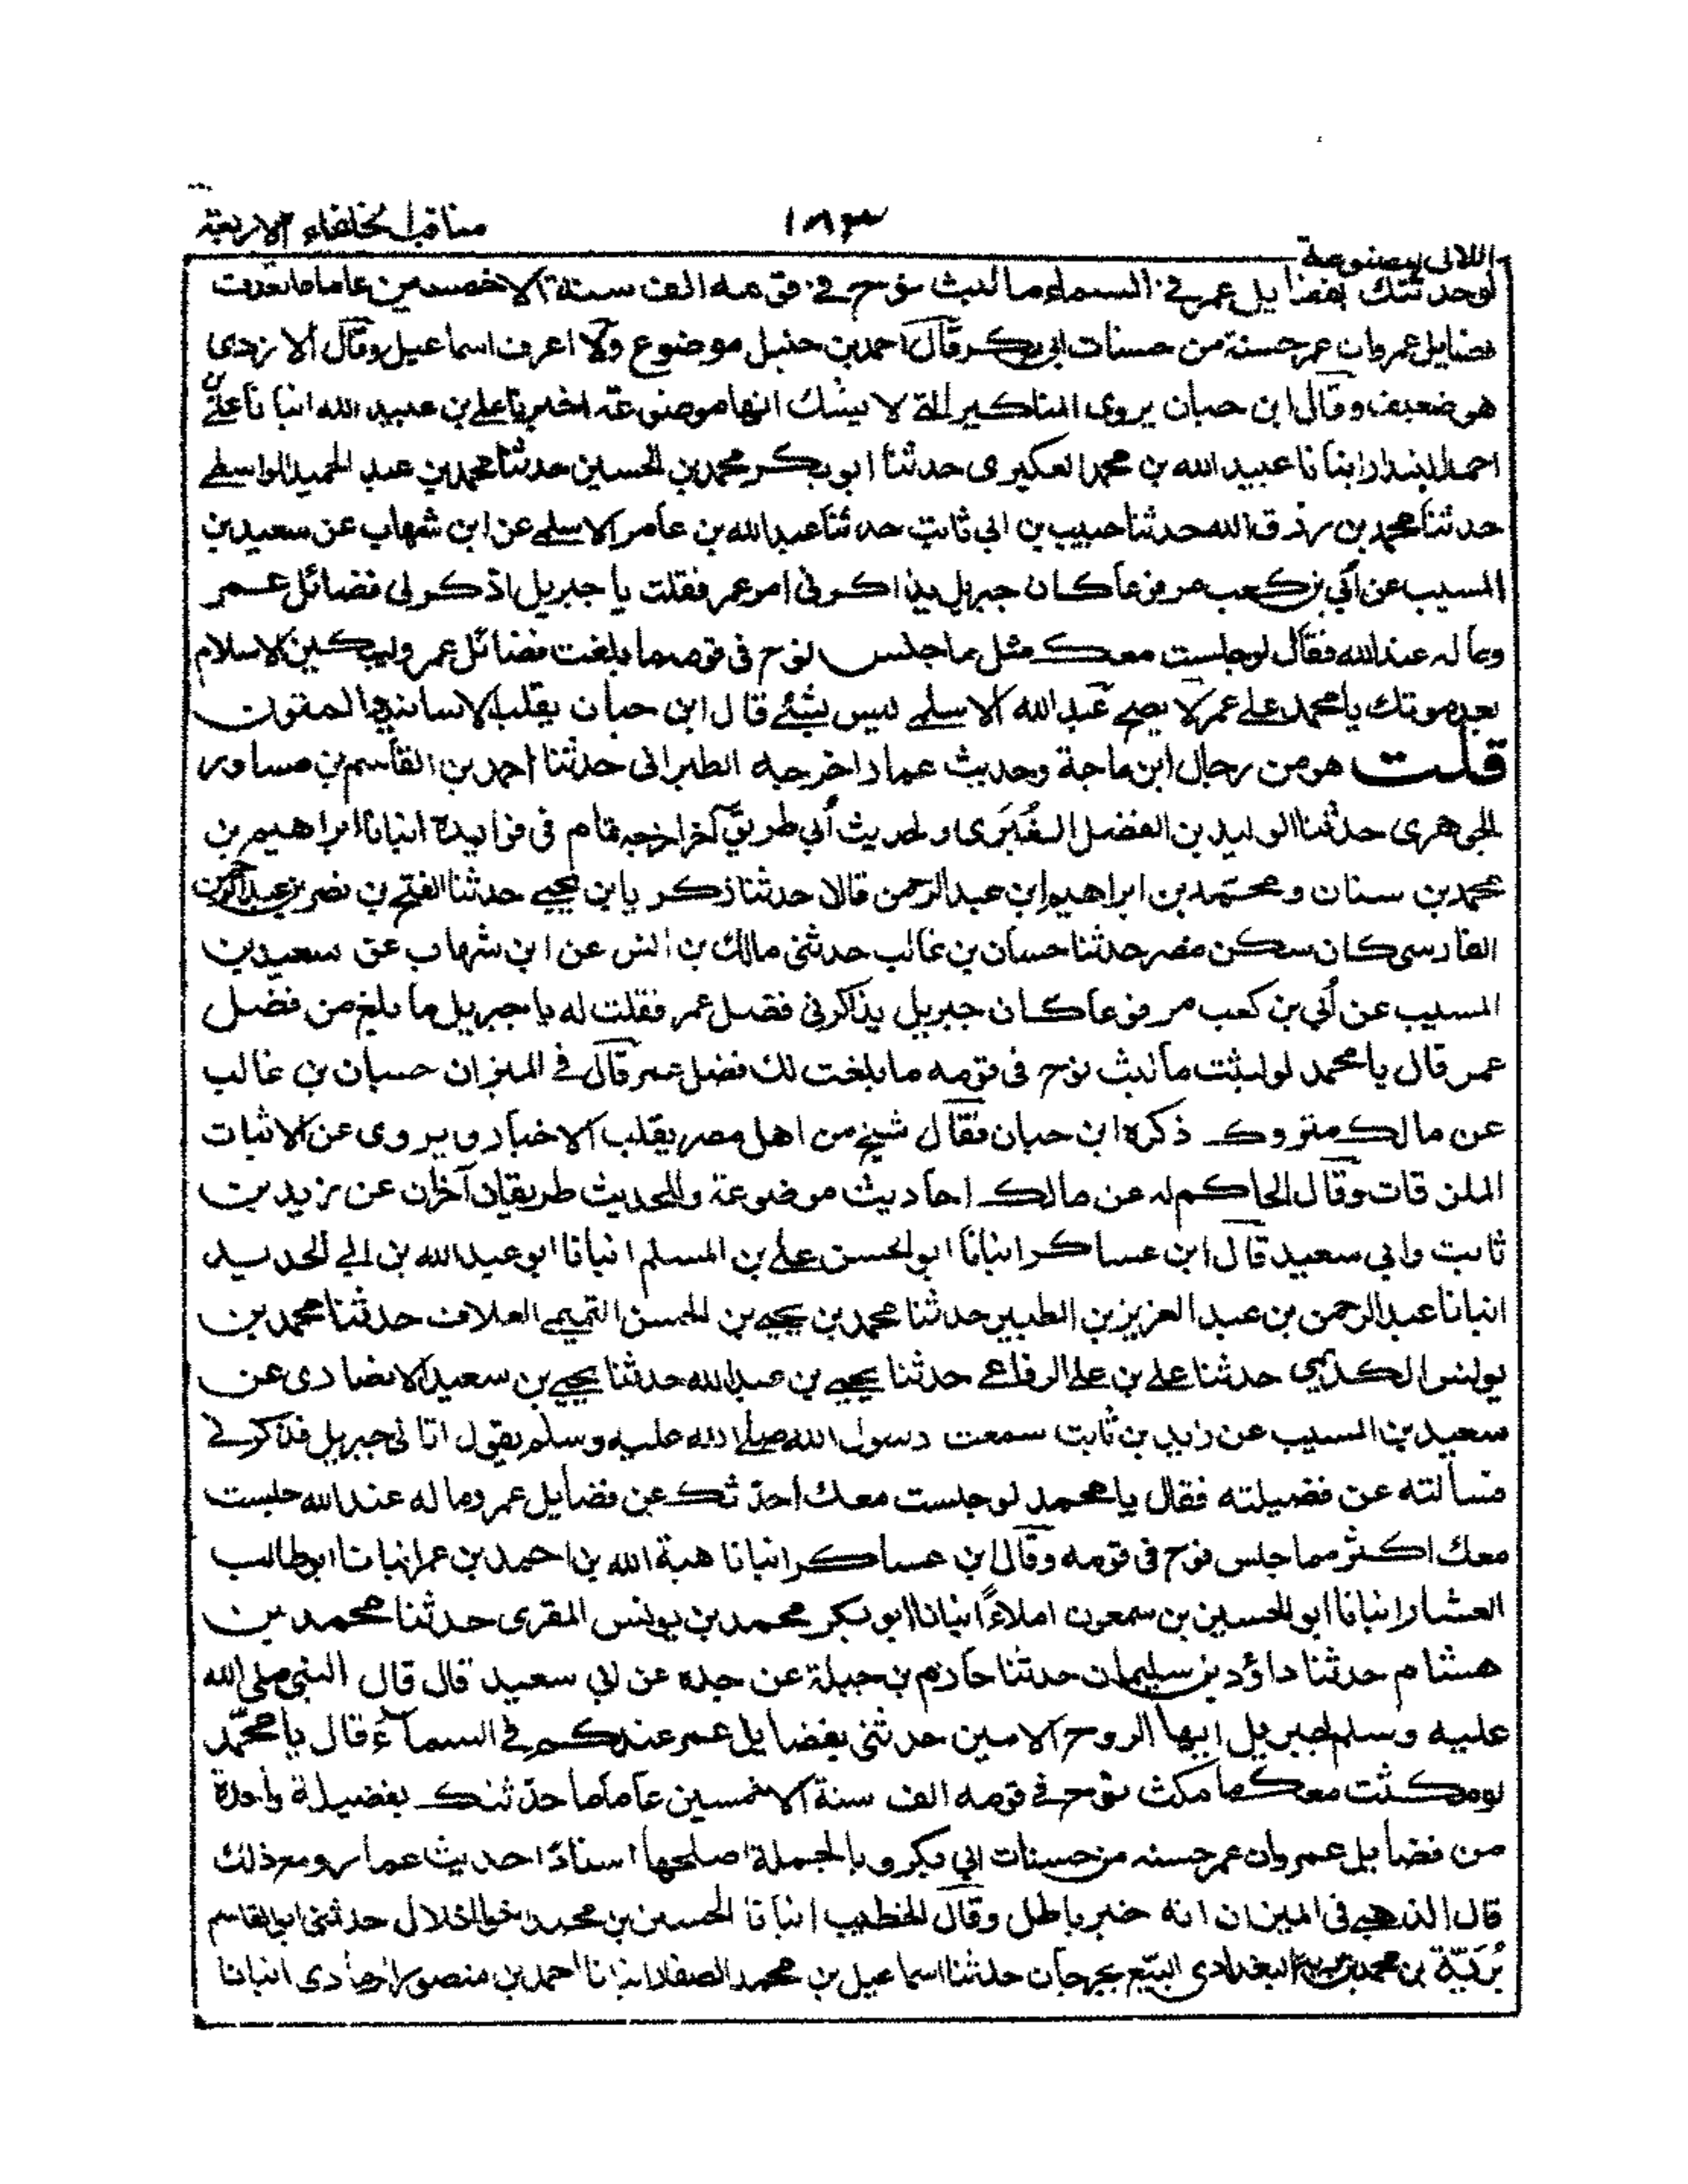 مناقب الخلفاء الاربعة
١٨٣
اللالى المصنوعة
لوحدثتك بفضايل عمر في السماء ما لبث نوح في قومه الف سنة الا خمسين عاما ما نفدت
فضايل عمر وان عمر حسنة من حسنات ابى بكر قال احمد بن حنبل موضوع ولا اعرف اسماعيل وقال الازدى
هو ضعيف وقال ابن حبان يروى المناكير التى لا يشك انها موضوعة اخبرنا على بن عبيد الله انبانا على بن
احمد البندار انبانا عبيد الله بن محمد العكبرى حدثنا ابوبكر محمد بن الحسين حدثنا محمد بن عبد الحميد الواسطے
حدثنا محمد بن رزق الله حدثنا حبيب بن ابي ثابت حدثنا عبدالله بن عامر الاسلمے عن ابن شهاب عن سعيد بن
المسيب عن أبي بن كعب مرفوعا كان جبريل يذاكرنى امر عمر فقلت يا جبريل اذكر لى فضائل عمر
وما له عند الله فقال لو جلست معك مثل ما جلس نوح فى قومه ما بلغت فضائل عمر وليبكين الاسلام
بعد موتك يا محمد على عمر لا يصح عبد الله الاسلمے ليس بشئے قال ابن حبان يقلب الاسانيد والمتون
قلت هو من رجال ابن ماجة وحديث عمار اخرجه الطبرانى حدثنا احمد بن القاسم بن مساور
الجوهرى حدثنا الوليد بن الفضل العنزى ولحديث أبي طريق آخر اخرجه تمام فى فوايده انبانا ابراهيم بن
محمد بن سنان ومحمد بن ابراهيم ابن عبدالرحمن قالا حدثنا زكريا بن يحيے حدثنا الفتح بن نصر بن عبدالرحمن
الفارسى كان سكن مصر حدثنا حسان بن غالب حدثنى مالك بن انس عن ابن شهاب عن سعيد بن
المسيب عن أبي بن كعب مرفوعا كان جبريل يذاكرنى فضل عمر فقلت له يا جبريل ما بلغ من فضل
عمر قال يا محمد لو لبثت ما لبث نوح فى قومه ما بلغت لك فضل عمر قال فى الميزان حسان بن غالب
عن مالك متروك ذكره ابن حبان فقال شيخ من اهل مصر يقلب الاخبار ويروى عن الاثبات
الملزقات وقال الحاكم له عن مالك احاديث موضوعة وللحديث طريقان آخران عن زيد بن
ثابت وابي سعيد قال ابن عساكر انبانا ابو الحسن على بن المسلم انبانا ابوعبدالله بن ابى الحديد
انبانا عبدالرحمن بن عبدالعزيز بن الطبيز حدثنا محمد بن يحيے بن الحسن التميمے العلاف حدثنا محمد بن
يونس الكديمي حدثنا على بن على الرفاعے حدثنا يحيے بن عبدالله حدثنا يحيے بن سعيد الانصارى عن
سعيد بن المسيب عن زيد بن ثابت سمعت رسول الله صلى الله عليه وسلم يقول اتانى جبريل فذكر لے
فسألته عن فضيلته فقال يا محمد لو جلست معك احدثك عن فضايل عمر وما له عند الله جلست
معك اكثر مما جلس نوح فى قومه وقال ابن عساكر انبانا هبة الله بن احمد بن عمر انبانا ابوطالب
العشار انبانا ابو الحسين بن سمعون املاءً انبانا ابوبكر محمد بن يونس المقرى حدثنا محمد بن
هشام حدثنا داؤد بن سليمان حدثنا حازم بن جبلة عن جده عن ابي سعيد قال قال النبى صلى الله
عليه وسلم لجبريل ايها الروح الامين حدثنى بفضايل عمر عندكم فى السماء قال يا محمّد
لو مكثت معك ما مكث نوح فى قومه الف سنة الا خمسين عاما ما حدثتك بفضيلة واحدة
من فضايل عمر وان عمر حسنه من حسنات ابي بكر وبالجملة اصلحها اسنادًا حديث عمار ومع ذلك
قال الذهبے فى الميزان انه خبر باطل وقال الخطيب انبانا الحسين بن محمد اخو الخلال حدثنى ابوالقاسم
بُريّة بن محمد بن بريه البغدادى البيّع بجرجان حدثنا اسماعيل بن محمد الصفار انبانا احمد بن منصور الرمادى انبانا